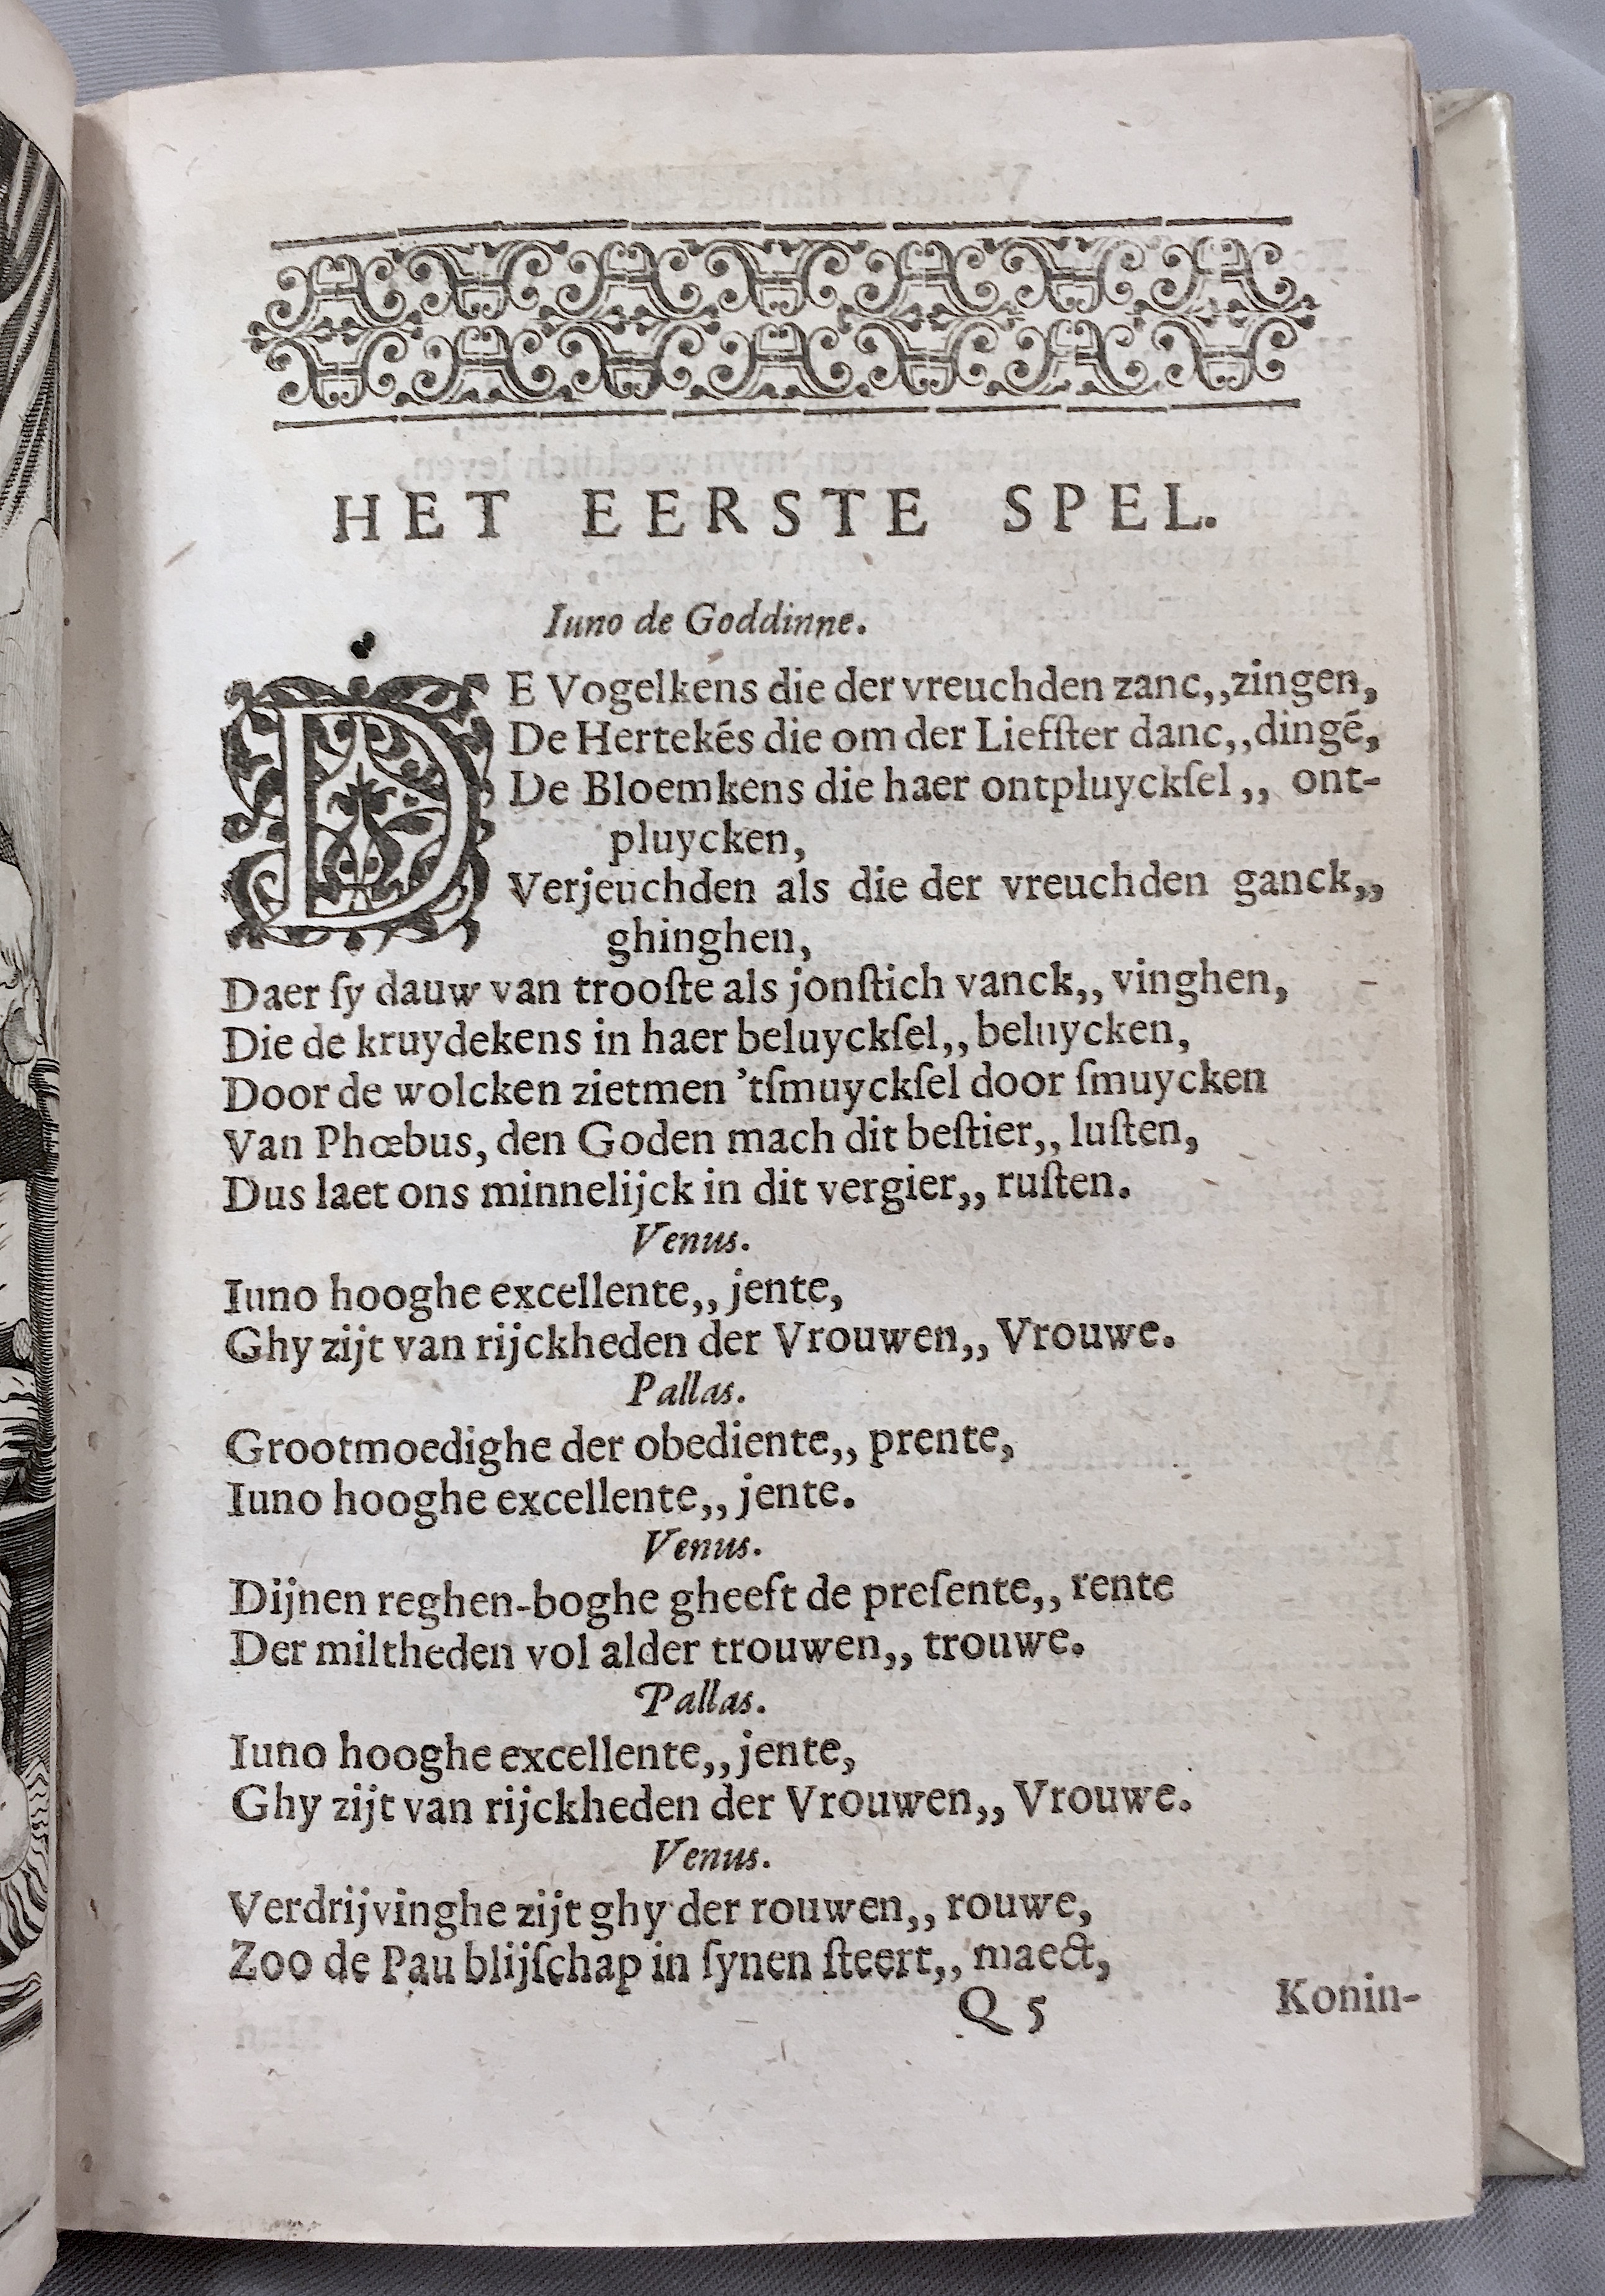 HET EERSTE SPEL.
Iuno de Goddinne.
DE Vogelkens die der vreuchden zanc,,zingen,
De Hertekés die om der Liefſter danc,,dingé,
De Bloemkens die haer ontpluyckſel,, ont-
pluycken,
Verjeuchden als die der vreuchden ganck,,
ghinghen,
Daer ſy dauw van trooſte als jonſtich vanck,, vinghen,
Die de kruydekens in haer beluyckſel,, beluycken,
Door de wolcken zietmen 'tſmuyckſel door ſmuycken
Van Phœbus, den Goden mach dit beſtier,, luſten,
Dus laet ons minnelijck in dit vergier,, ruſten.
Venus.
Iuno hooghe excellente,, jente,
Ghy zijt van rijckheden der Vrouwen,, Vrouwe.
Pallas.
Grootmoedighe der obediente,, prente,
Iuno hooghe excellente,, jente.
Venus.
Dijnen reghen-boghe gheeft de preſente,, rente
Der miltheden vol alder trouwen,, trouwe.
Pallas.
Iuno hooghe excellente,, jente,
Ghy zijt van rijckheden der Vrouwen,, Vrouwe.
Venus.
Verdrijvinghe zijt ghy der rouwen,, rouwe,
Zoo de Pau blijſchap in ſynen ſteert,, maect,
Q 5 Konin-